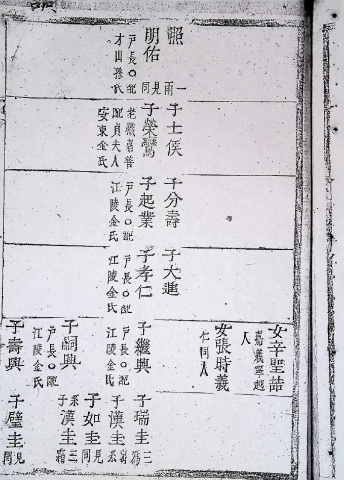 熙
一雨
明佑
見同
戶長○配
才山孫氏
子士俊
子榮鸞
老職嘉善
配貞夫人
安東金氏
子分壽
子起業
戶長○配
江陵金氏
子大進
子孝仁
戶長○配
江陵金氏
女辛聖喆
嘉義寧越
人
女張時義
仁同人
子繼興
戶長○配
江陵金氏
子嗣興
戶長○配
江陵金氏
子壽興
子瑞圭
子漢圭
子如圭
見同
子漢圭
子璧圭
見同